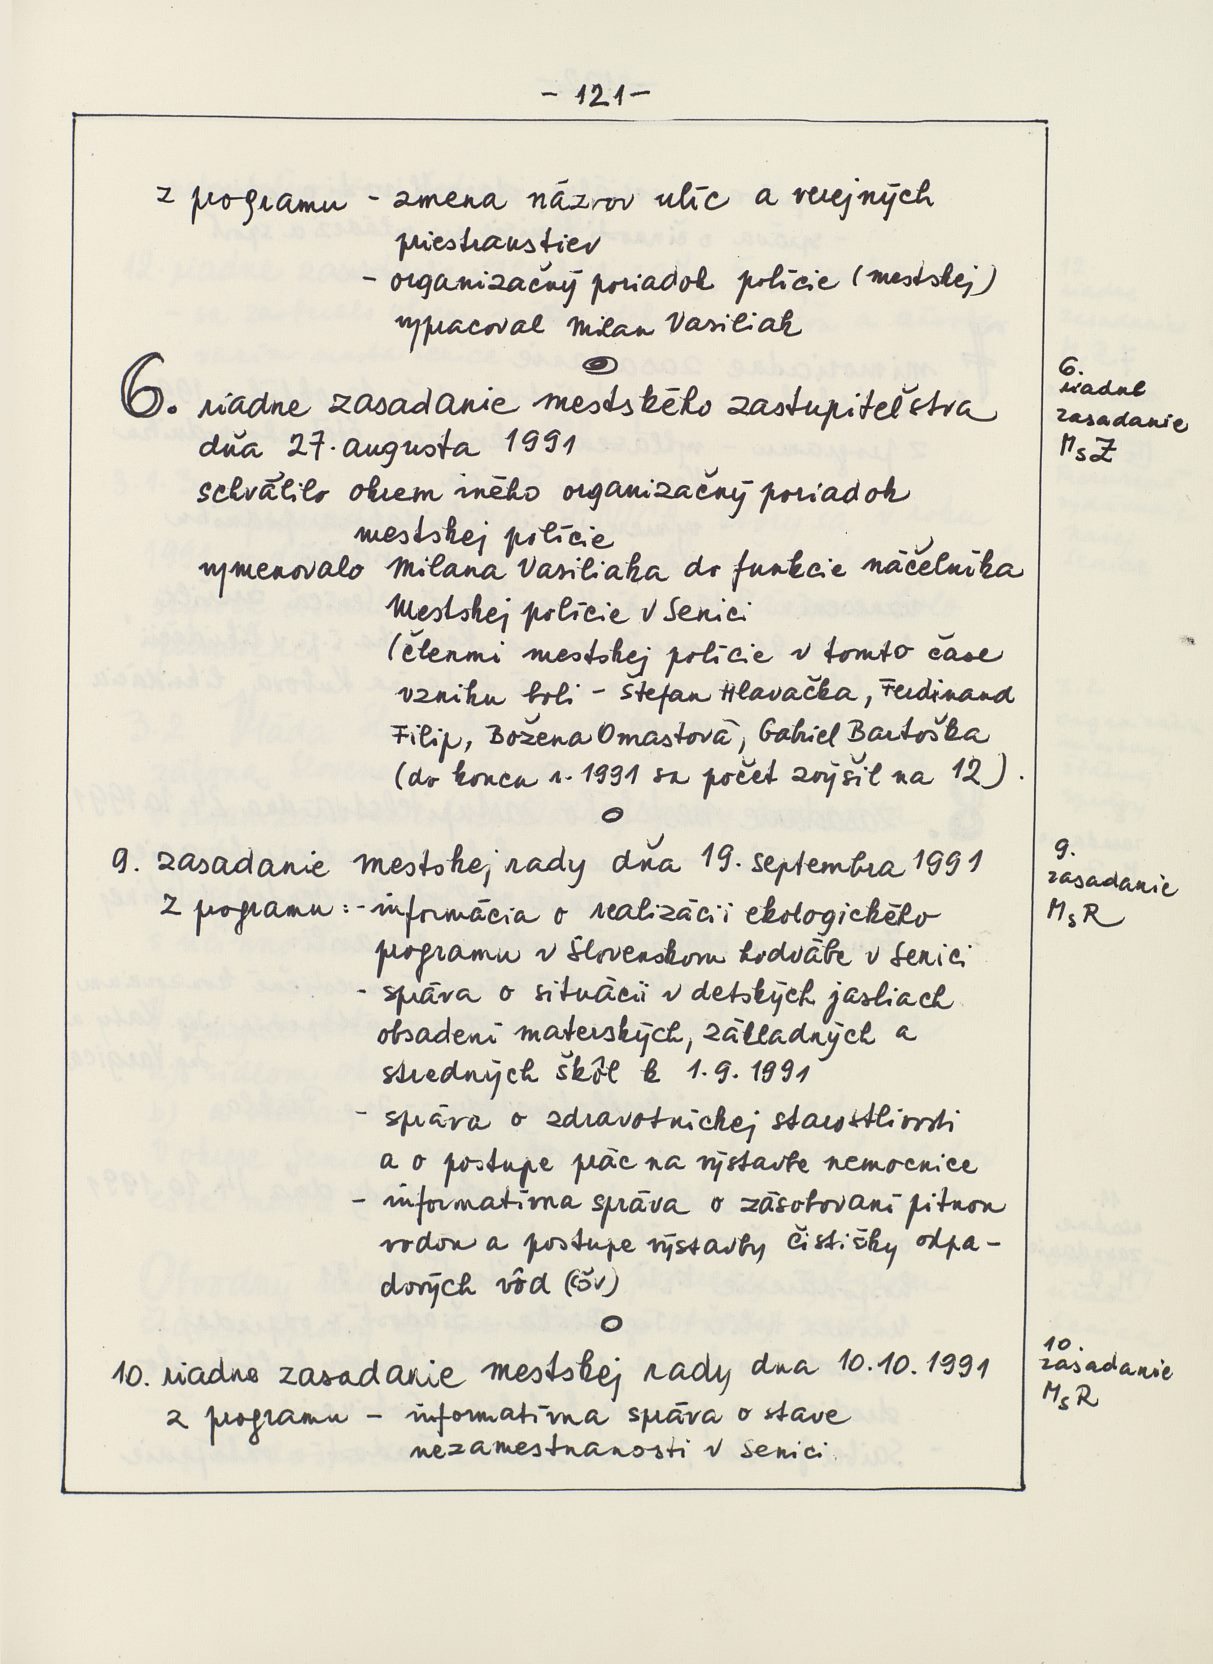 - 121 -
z programu - zmena názvov ulíc a verejných
priestranstiev
- organizačný poriadok polície (mestskej)
vypracoval Milan Vasiliak
6. riadne zasadanie mestského zastupiteľstva
dňa 27. augusta 1991
schválilo okrem iného organizačný poriadok
mestskej polície
vymenovalo Milana Vasiliaka do funkcie náčelníka
Mestskej polície v Senici
(členmi mestskej polície v tomto čase
vzniku boli - Štefan Hlavačka, Ferdinand
Filip, Božena Omastová, Gabriel Bartoška
(do koncu r. 1991 sa počet zvýšil na 12).
6.
riadne
zasadanie
MsZ
9. zasadanie mestskej rady dňa 19. septembra 1991
z programu: - informácia o realizácii ekologického
programu v Slovenskom hodvábe v Senici
- správa o situácii v detských jasliach
obsadení materských, základných a
stredných škôl k 1.9.1991
- správa o zdravotníckej starostlivosti
a o postupe prác na výstavbe nemocnice
- informatívna správa o zásobovaní pitnou
vodou a postupe výstavby čističky odpa-
dových vôd (čov)
9.
zasadanie
MsR
10. riadne zasadanie mestskej rady dna 10.10.1991
z programu - informatívna správa o stave
nezamestnanosti v Senici
10.
zasadanie
MsR